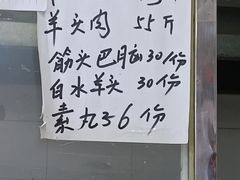 羊头肉 55斤
筋头巴脑30/份
白水羊头 30份
素丸子6份